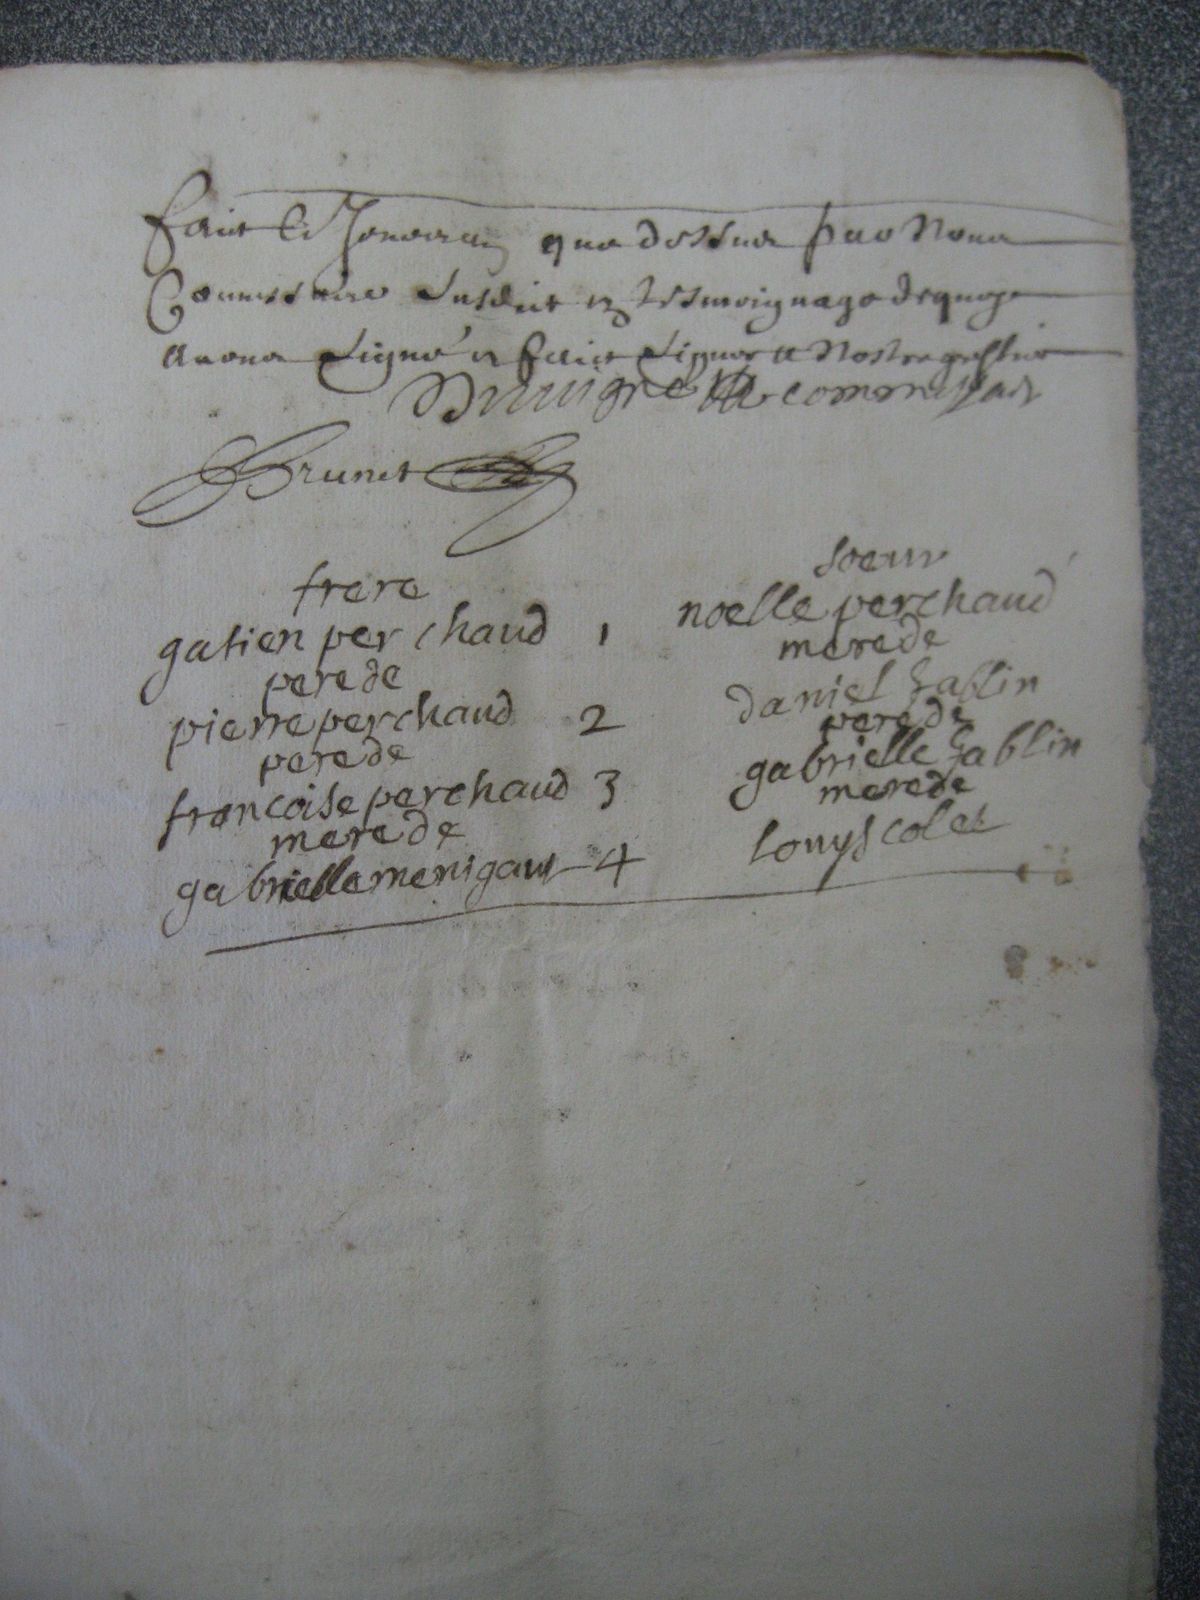 faict les Jour et an que dessus par Nous
Commissaire susdict en tesmoignage dequoy
avons signé et faict signer a nostre greffier
commissair
Brunet
frere soeur
gatien perchaud 1 noelle perchaud
pere de mere de
pierre perchaud 2 daniel hablin
pere de pere de
francoise perchaud 3 gabrielle hablin
mere de mere de
gabrielle menigaut 4 louys colet